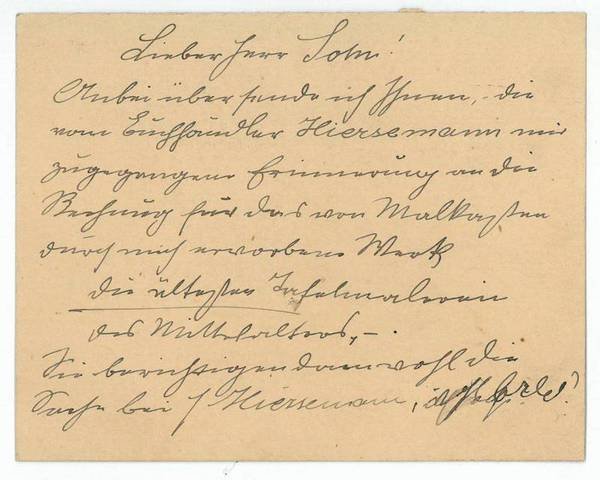 Lieber Herr Sohn!
Anbei übersende ich Ihnen, die
vom Buchhändler Hiersemann mir
zugegangene Erinnerung an die
Rechnung für das von Malkasten
durch mich erworbene Werk
die ältesten Tafelmalereien
des Mittelalters, –.
Sie berichtigen dann wohl die
Sache bei Hiersemann,